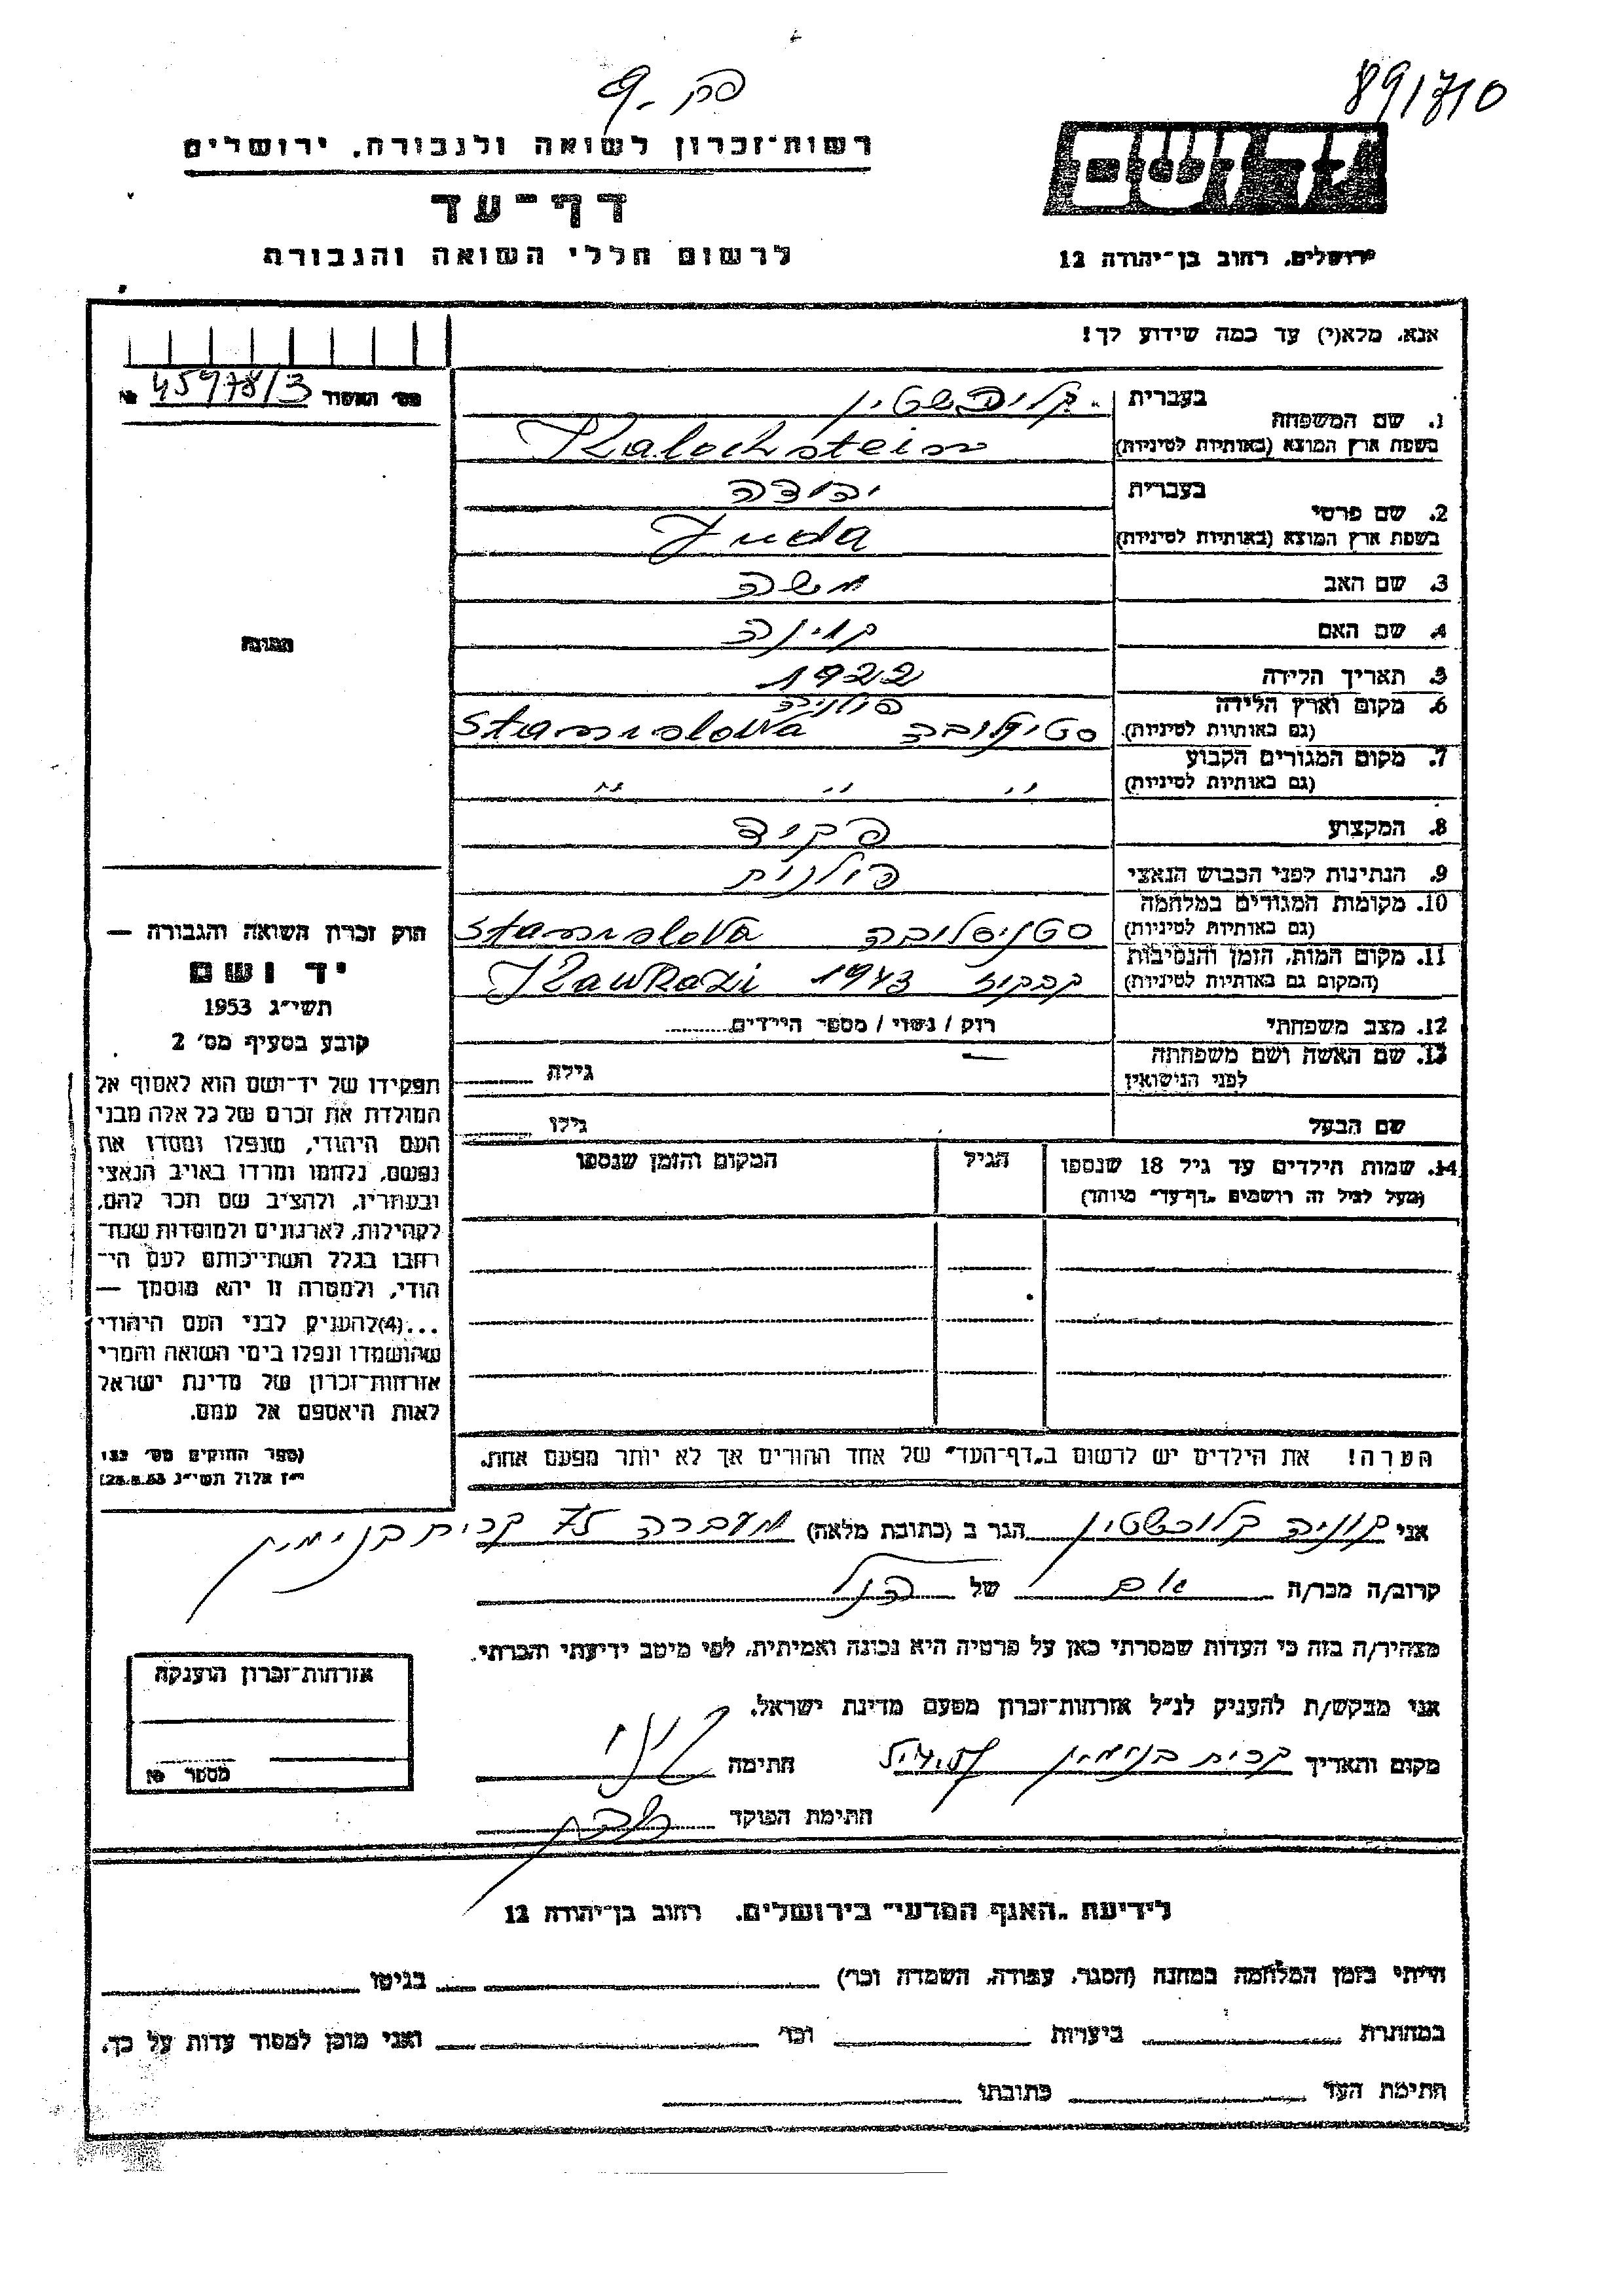 891710
פק. 9
רשות־זכרון לשואה ולגבורה, ירושלים
דף־עד
לרשום חללי השואה והגבורה
יד ושם
ירושלים, רחוב בן־יהודה 12
אנא, מלא(י) עד כמה שידוע לך!
מס' האסוד № 45978/3
התמונה
1. שם המשפחה
בעברית
בשפת ארץ המוצא (באותיות לטיניות)
Kalochstein
2. שם פרטי
בעברית יהודה
בשפת ארץ המוצא (באותיות לטיניות) Juda
3. שם האב משה
4. שם האם
5. תאריך הלידה 1922
6. מקום וארץ הלידה פולניה
(גם באותיות לטיניות) Stanislova
7. מקום המגורים הקבוע
(גם באותיות לטיניות) " " "
8. המקצוע פקיד
9. הנתינות לפני הכבוש הנאצי פולנית
10. מקומות המגורים במלחמה
(גם באותיות לטיניות) סטניסלובה Stanislova
11. מקום המות, הזמן והנסיבות
(המקום גם באותיות לטיניות) קבקוז 1943 Kawkazi
12. מצב משפחתי רוק / נשוי / מספר הילדים
13. שם האשה ושם משפחתה
לפני הנישואין
גילה
שם הבעל גילו
14. שמות הילדים עד גיל 18 שנספו
(מעל לגיל זה רושמים „דף־עד" מיוחד)
הגיל
המקום והזמן שנספו
הערה! את הילדים יש לרשום ב„דף־העד" של אחד ההורים אך לא יותר מפעם אחת.
חוק זכרון השואה והגבורה —
יד ושם
תשי״ג 1953
קובע בסעיף מס' 2
תפקידו של יד־ושם הוא לאסוף אל
המולדת את זכרם של כל אלה מבני
העם היהודי, שנפלו ומסרו את
נפשם, נלחמו ומרדו באויב הנאצי
ובעוזריו, ולהציב שם וזכר להם,
לקהילות, לארגונים ולמוסדות שנח־
רבו בגלל השתייכותם לעם הי־
הודי, ולמטרה זו יהא מוסמך —
...(4)להעניק לבני העם היהודי
שהושמדו ונפלו בימי השואה והמרי
אזרחות־זכרון של מדינת ישראל
לאות היאספם אל עמם.
(ספר החוקים מס' 132
י״ז אלול תשי״ג 28.8.53)
אני קוניה קלוכשטין הגר ב (כתובת מלאה) מעברה 75 קרית בנימין
קרוב/ה מכר/ה אם של הנ״ל
מצהיר/ה בזה כי העדות שמסרתי כאן על פרטיה היא נכונה ואמיתית, לפי מיטב ידיעתי והכרתי.
אני מבקש/ת להעניק לנ״ל אזרחות־זכרון מטעם מדינת ישראל.
מקום ותאריך קרית בנימין חתימה
חתימת הפוקד
אזרחות־זכרון הוענקה
מספר №
לידיעת „האגף המדעי" בירושלים, רחוב בן־יהודה 12
הייתי בזמן המלחמה במחנה (הסגר, עבודה, השמדה וכו') בגיטו
במחתרת ביערות וכו' ואני מוכן למסור עדות על כך.
חתימת העד כתובתו